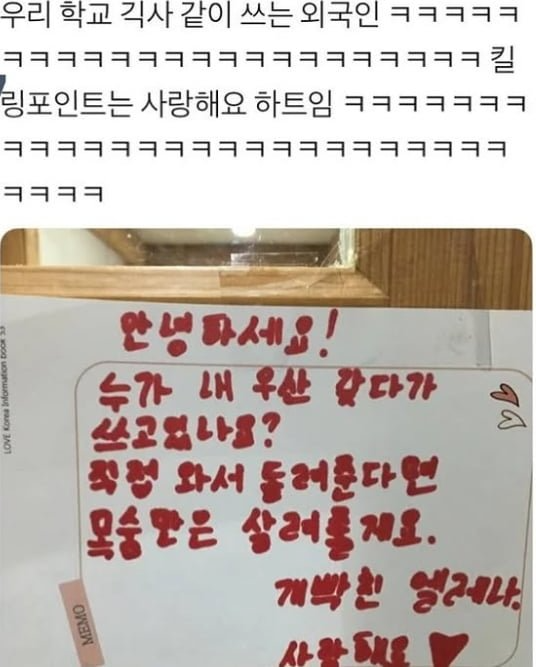 우리 학교 긱사 같이 쓰는 외국인 ㅋㅋㅋㅋㅋ
ㅋㅋㅋㅋㅋㅋㅋㅋㅋㅋㅋㅋㅋㅋㅋㅋㅋㅋ 킬
링포인트는 사랑해요 하트임 ㅋㅋㅋㅋㅋㅋㅋ
ㅋㅋㅋㅋㅋㅋㅋㅋㅋㅋㅋㅋㅋㅋㅋㅋㅋㅋㅋ
ㅋㅋㅋㅋ
안녕하세요!
누가 내 우산 갖다가
쓰고있나요?
직접 와서 돌려준다면
목숨만은 살려줄게요.
개빡친 엘레나.
사랑해요 ♥
LOVE Korea Information Book
MEMO